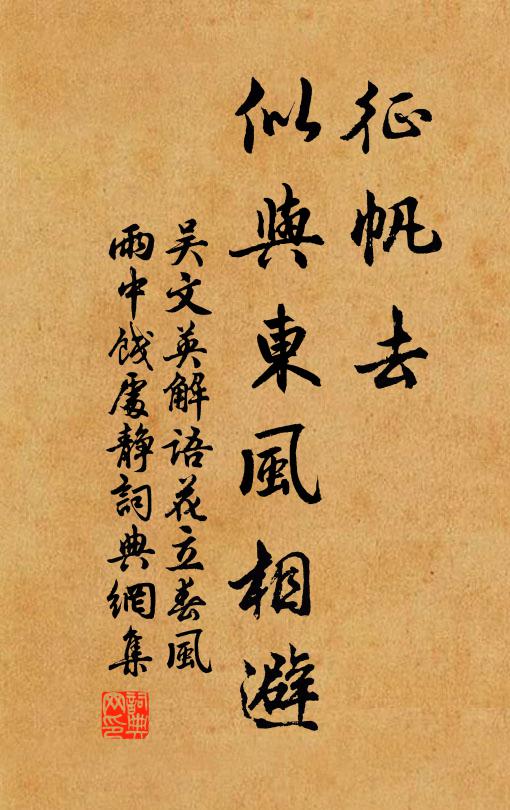 征帆去
似與東風相避
吴文英解語花立春風
雨中餞處靜詞典網集
詞典网印